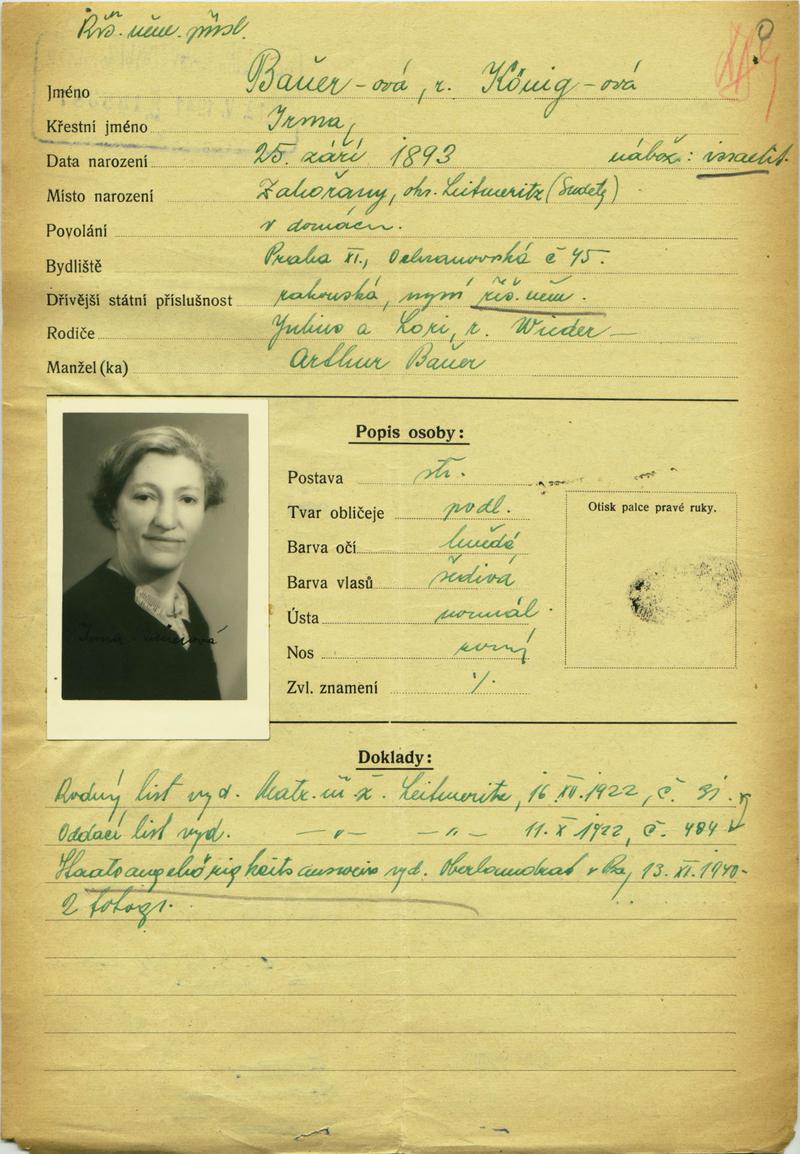 Říš. něm. přísl.
Jméno Bauer-ová, r. König-ová
Křestní jméno Irma,
Data narození 25. září 1893 nábož.: israelit.
Místo narození Zahořany, okr. Leitmeritz (Sudety)
Povolání v domácn.
Bydliště Praha XI., Ochranovská č 45.
Dřívější státní příslušnost rakouská, nyní říš. něm.
Rodiče Julius a Lori, r. Wieder
Manžel(ka) Arthur Bauer
Popis osoby:
Postava stř.
Tvar obličeje podl.
Barva očí hnědá
Barva vlasů šedivá
Ústa normál.
Nos rovný
Zvl. znamení ·/·
Otisk palce pravé ruky.
Irma Bauerová
Doklady:
Rodný list vyd. Matr. úř. ž. Leitmeritz, 16. XII. 1922, č.
Oddací list vyd. — " — — " — 11. X 1922, č. 484
Staatsangehörigkeitsausweis vyd. Oberlandrat v Pze, 13. XI. 1940.
2 fotogr.